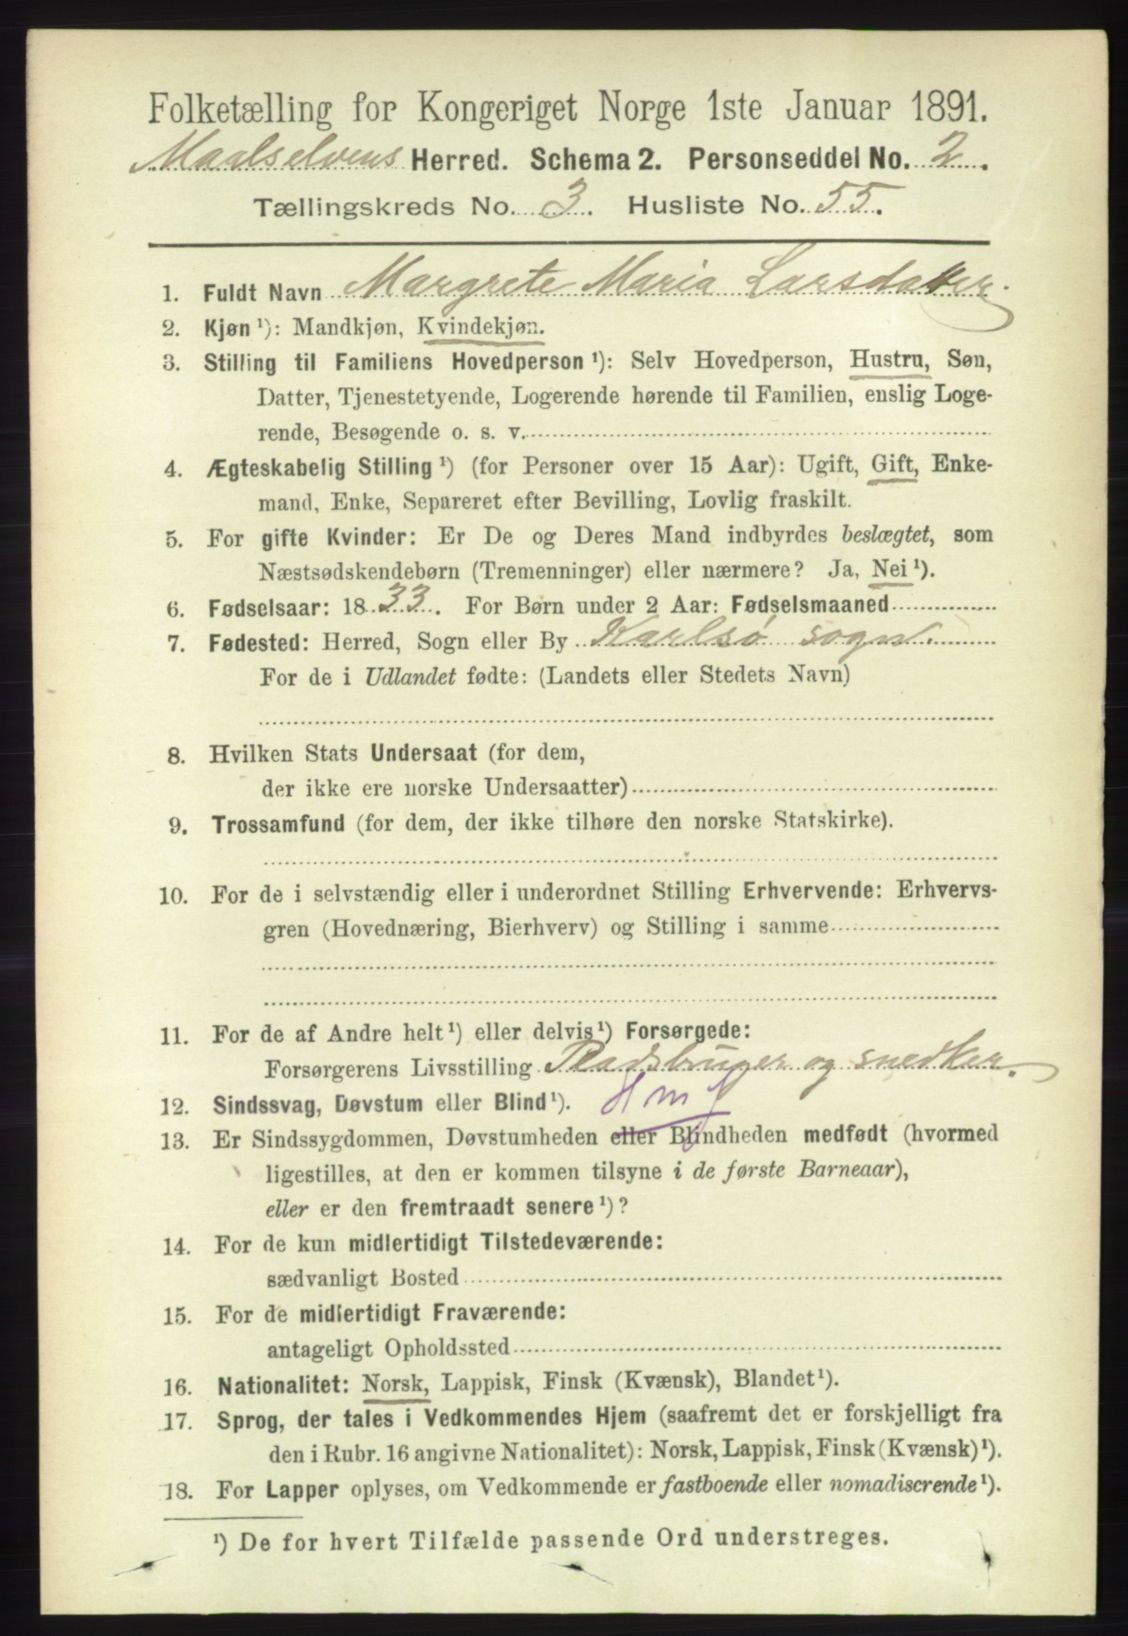 Folketælling for Kongeriget Norge 1ste Januar 1891.
Maalselvens Herred. Schema 2. Personseddel No. 2.
Tællingskreds No. 3. Husliste No. 55.
1. Fuldt Navn Margrete Maria Larsdatter.
2. Kjøn ¹): Mandkjøn, Kvindekjøn.
3. Stilling til Familiens Hovedperson ¹): Selv Hovedperson, Hustru, Søn,
Datter, Tjenestetyende, Logerende hørende til Familien, enslig Loge-
rende, Besøgende o. s. v.
4. Ægteskabelig Stilling ¹) (for Personer over 15 Aar): Ugift, Gift, Enke-
mand, Enke, Separeret efter Bevilling, Lovlig fraskilt.
5. For gifte Kvinder: Er De og Deres Mand indbyrdes beslægtet, som
Næstsødskendebørn (Tremenninger) eller nærmere? Ja, Nei ¹).
6. Fødselsaar: 1833. For Børn under 2 Aar: Fødselsmaaned
7. Fødested: Herred, Sogn eller By Karlsø sogn.
For de i Udlandet fødte: (Landets eller Stedets Navn)
8. Hvilken Stats Undersaat (for dem,
der ikke ere norske Undersaatter)
9. Trossamfund (for dem, der ikke tilhøre den norske Statskirke).
10. For de i selvstændig eller i underordnet Stilling Erhvervende: Erhvervs-
gren (Hovednæring, Bierhverv) og Stilling i samme
11. For de af Andre helt ¹) eller delvis ¹) Forsørgede:
Forsørgerens Livsstilling Pladsbruger og snedker.
12. Sindssvag, Døvstum eller Blind ¹). Hmf
13. Er Sindssygdommen, Døvstumheden eller Blindheden medfødt (hvormed
ligestilles, at den er kommen tilsyne i de første Barneaar),
eller er den fremtraadt senere ¹)?
14. For de kun midlertidigt Tilstedeværende:
sædvanligt Bosted
15. For de midlertidigt Fraværende:
antageligt Opholdssted
16. Nationalitet: Norsk, Lappisk, Finsk (Kvænsk), Blandet ¹).
17. Sprog, der tales i Vedkommendes Hjem (saafremt det er forskjelligt fra
den i Rubr. 16 angivne Nationalitet): Norsk, Lappisk, Finsk (Kvænsk) ¹).
18. For Lapper oplyses, om Vedkommende er fastboende eller nomadiserende ¹).
¹) De for hvert Tilfælde passende Ord understreges.